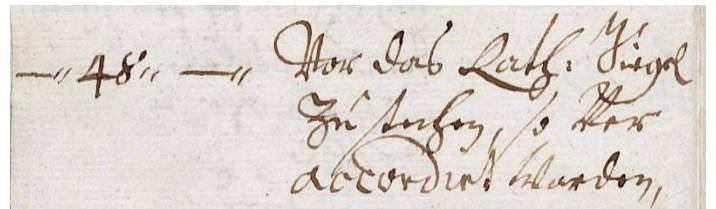 —„ 48„ —„ Vor das Rath: Siegel
Zu stechen, so Ver
accordirt Worden,